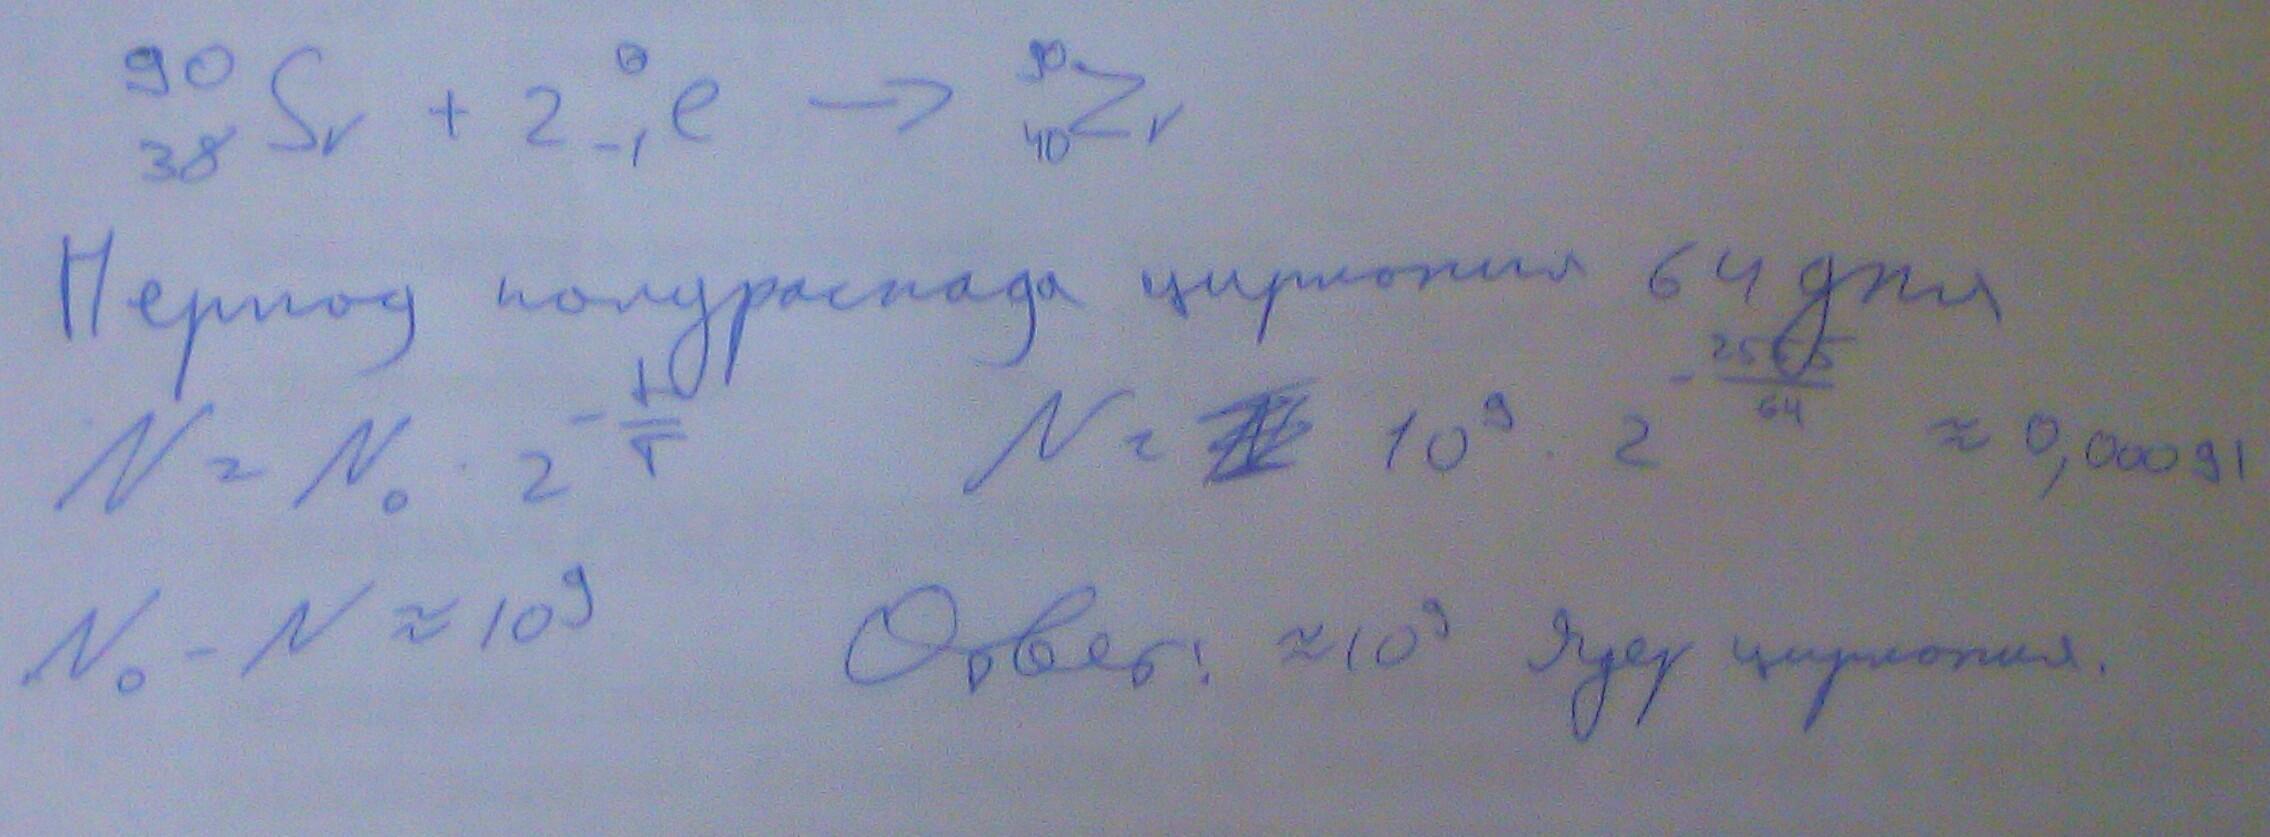 ⁹⁰₃₈Sr + 2 ⁰₋₁e → ⁹⁰₄₀Zr
Период полураспада циркония 64 дня
N = N₀ · 2^(-t/T) N = 10⁹ · 2^(-2565/64) ≈ 0,00091
N₀ - N ≈ 10⁹ Ответ: ≈ 10⁹ Ядер циркония.